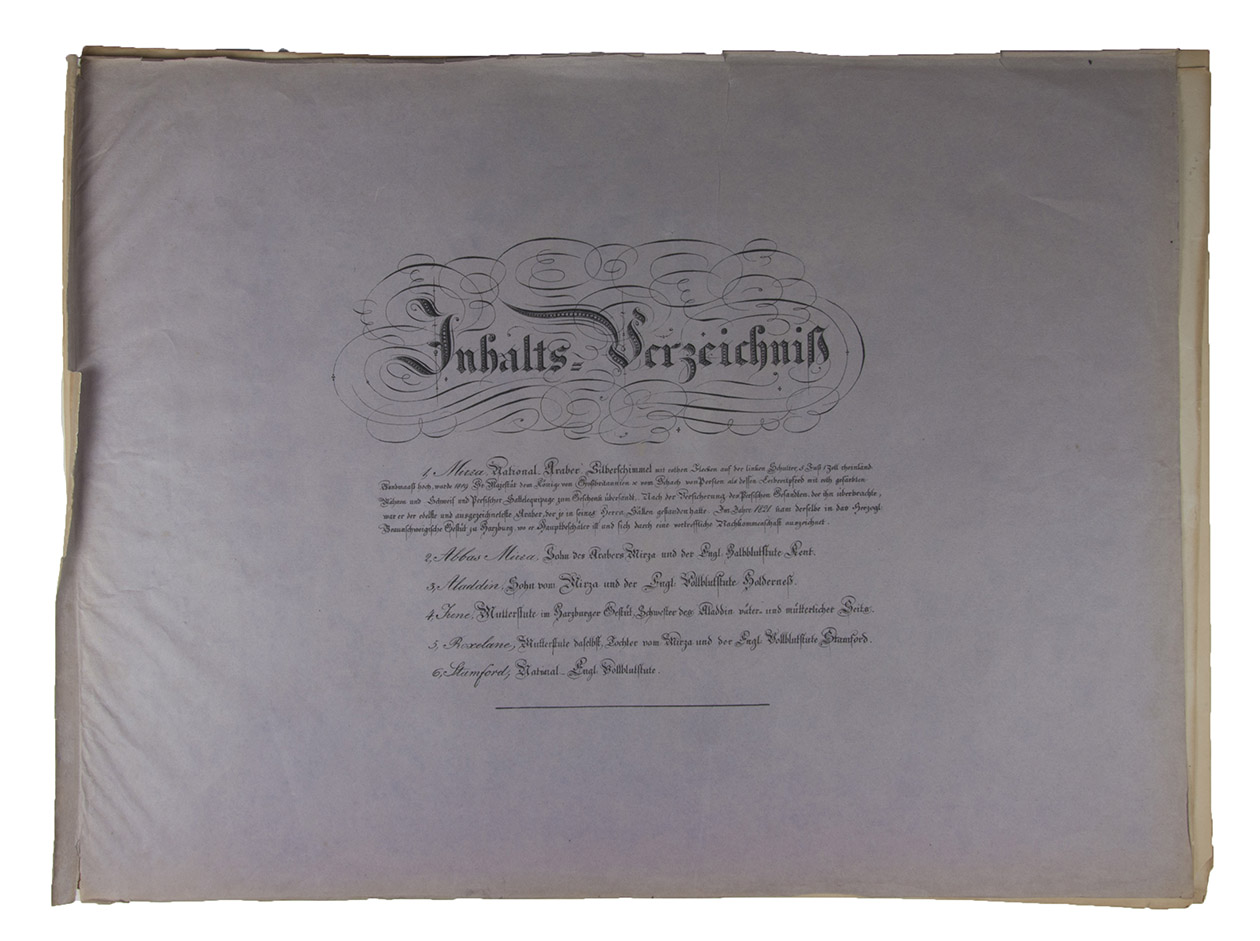 Inhalts=Verzeichniß
1, Mirza, National-Araber, Silberschimmel mit rothen Flecken auf der linken Schulter, 5 Fuß 1 Zoll rheinländ.
Bandmaaß hoch, wurde 1819 Sr. Majestät dem König von Großbritannien vom Schach von Persien als dessen Leibreitpferd mit roth gefärbten
Mähnen und Schweif und Persischer Sattelequipage zum Geschenk übersandt. Nach der Versicherung des Persischen Gesandten, der ihn überbrachte,
war er der edelste und ausgezeichnetste Araber, der je in seines Herrn Ställen gestanden hatte. Im Jahre 1821 kam derselbe in das Herzogl.
Braunschweigische Gestüt zu Harzburg, wo er Hauptbeschäler ist und sich durch eine vortreffliche Nachkommenschaft auszeichnet.
2, Abbas Mirza, Sohn des Arabers Mirza und der Engl. Halbblutstute Kent.
3, Aladdin, Sohn vom Mirza und der Engl. Vollblutstute Holderneß.
4, Irene, Mutterstute im Harzburger Gestüt, Schwester des Aladdin väter- und mütterlicher Seits.
5, Roxelane, Mutterstute daselbst, Tochter vom Mirza und der Engl. Vollblutstute Stamford.
6, Stamford, National-Engl. Vollblutstute.